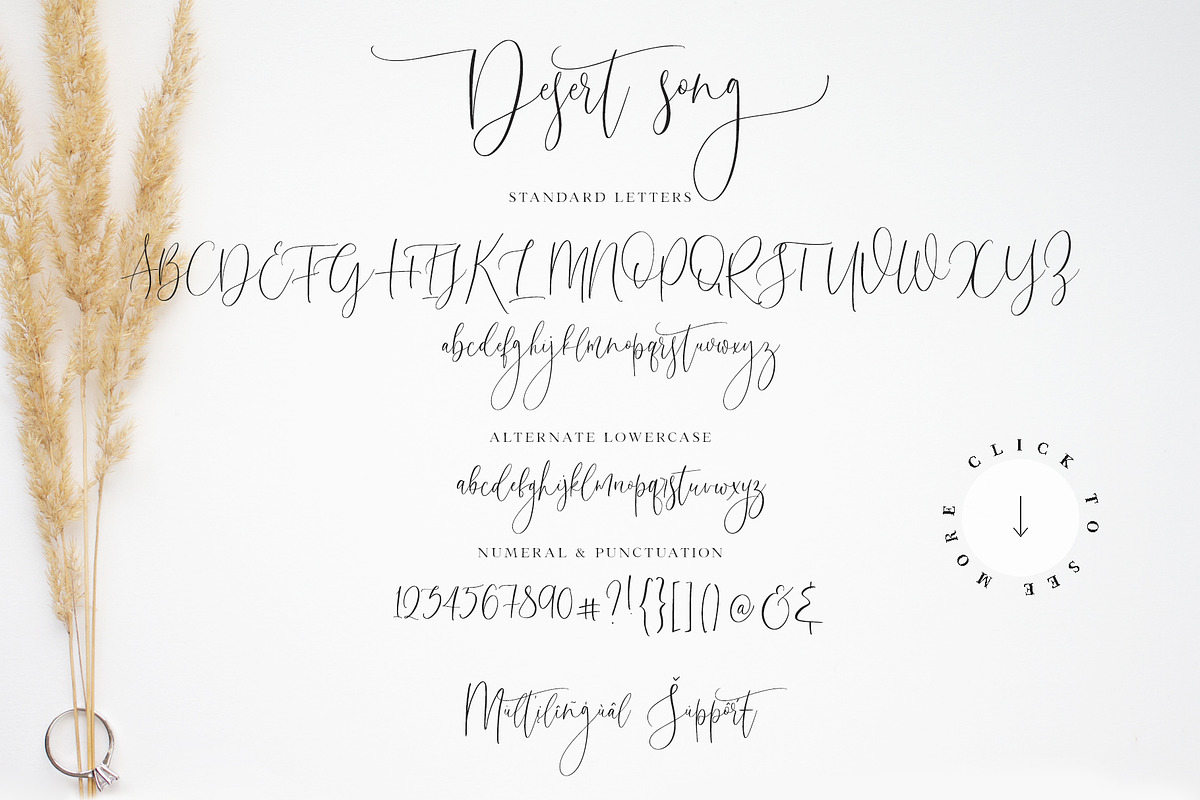 Desert song
STANDARD LETTERS
ABCDEFGHIJKLMNOPQRSTUVWXYZ
abcdefghijklmnopqrstuvwxyz
ALTERNATE LOWERCASE
abcdefghijklmnopqrstuvwxyz
NUMERAL & PUNCTUATION
1234567890#?!{}[]()@&&
Mùltïlîñġùâl Šùppôřt
CLICK TO SEE MORE